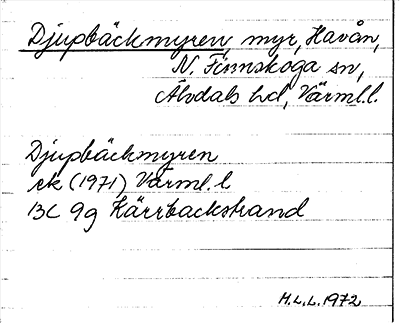 Djupbäckmyren, myr, Havån,
N. Finnskoga sn,
Älvdals hd, Värml.l.
Djupbäckmyren
ek (1971) Värml. l
13C 9g Kärrbackstrand
H.L.L. 1972